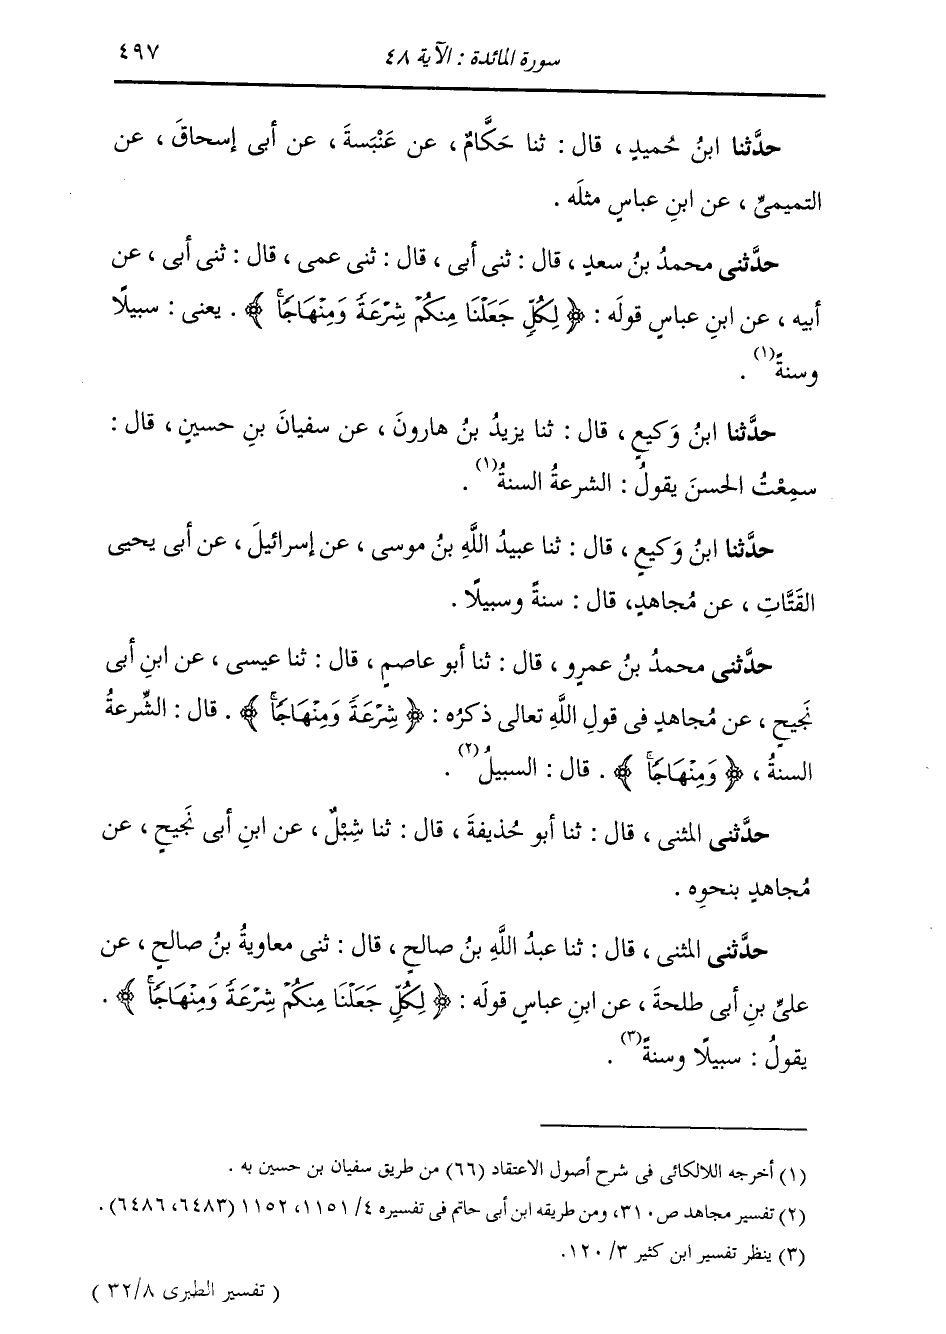 سورة المائدة : الآية ٤٨
٤٩٧
حدَّثنا ابنُ حُميدٍ ، قال : ثنا حَكَّامٌ ، عن عَنْبَسةَ ، عن أبى إسحاقَ ، عن
التميمىِّ ، عن ابنِ عباسٍ مثلَه .
حدَّثنى محمدُ بنُ سعدٍ ، قال : ثنى أبى ، قال : ثنى عمى ، قال : ثنى أبى ، عن
أبيه ، عن ابنِ عباسٍ قولَه : ﴿ لِكُلٍّ جَعَلْنَا مِنكُمْ شِرْعَةً وَمِنْهَاجًاۚ ﴾ . يعنى : سبيلًا
وسنةً(١) .
حدَّثنا ابنُ وَكيعٍ ، قال : ثنا يزيدُ بنُ هارونَ ، عن سفيانَ بنِ حسينٍ ، قال :
سمِعْتُ الحسنَ يقولُ : الشرعةُ السنةُ(١) .
حدَّثنا ابنُ وَكيعٍ ، قال : ثنا عبيدُ اللَّهِ بنُ موسى ، عن إسرائيلَ ، عن أبى يحيى
القَتَّاتِ ، عن مُجاهدٍ، قال : سنةً وسبيلًا .
حدَّثنى محمدُ بنُ عمرٍو ، قال : ثنا أبو عاصمٍ ، قال : ثنا عيسى ، عن ابنِ أبى
نَجيحٍ ، عن مُجاهدٍ فى قولِ اللَّهِ تعالى ذكرُه : ﴿ شِرْعَةً وَمِنْهَاجًاۚ ﴾ . قال : الشِّرعةُ
السنةُ ، ﴿ وَمِنْهَاجًاۚ ﴾ . قال : السبيلُ(٢) .
حدَّثنى المثنى ، قال : ثنا أبو حُذيفةَ ، قال : ثنا شِبْلٌ ، عن ابنِ أبى نَجيحٍ ، عن
مُجاهدٍ بنحوِه .
حدَّثنى المثنى ، قال : ثنا عبدُ اللَّهِ بنُ صالحٍ ، قال : ثنى معاويةُ بنُ صالحٍ ، عن
علىِّ بنِ أبى طلحةَ ، عن ابنِ عباسٍ قولَه : ﴿ لِكُلٍّ جَعَلْنَا مِنكُمْ شِرْعَةً وَمِنْهَاجًاۚ ﴾ .
يقولُ : سبيلًا وسنةً(٣) .
(١) أخرجه اللالكائى فى شرح أصول الاعتقاد (٦٦) من طريق سفيان بن حسين به .
(٢) تفسير مجاهد ص٣١٠، ومن طريقه ابن أبى حاتم فى تفسيره ٤/ ١١٥١، ١١٥٢ (٦٤٨٣، ٦٤٨٦) .
(٣) ينظر تفسير ابن كثير ٣/ ١٢٠.
( تفسير الطبرى ٣٢/٨ )